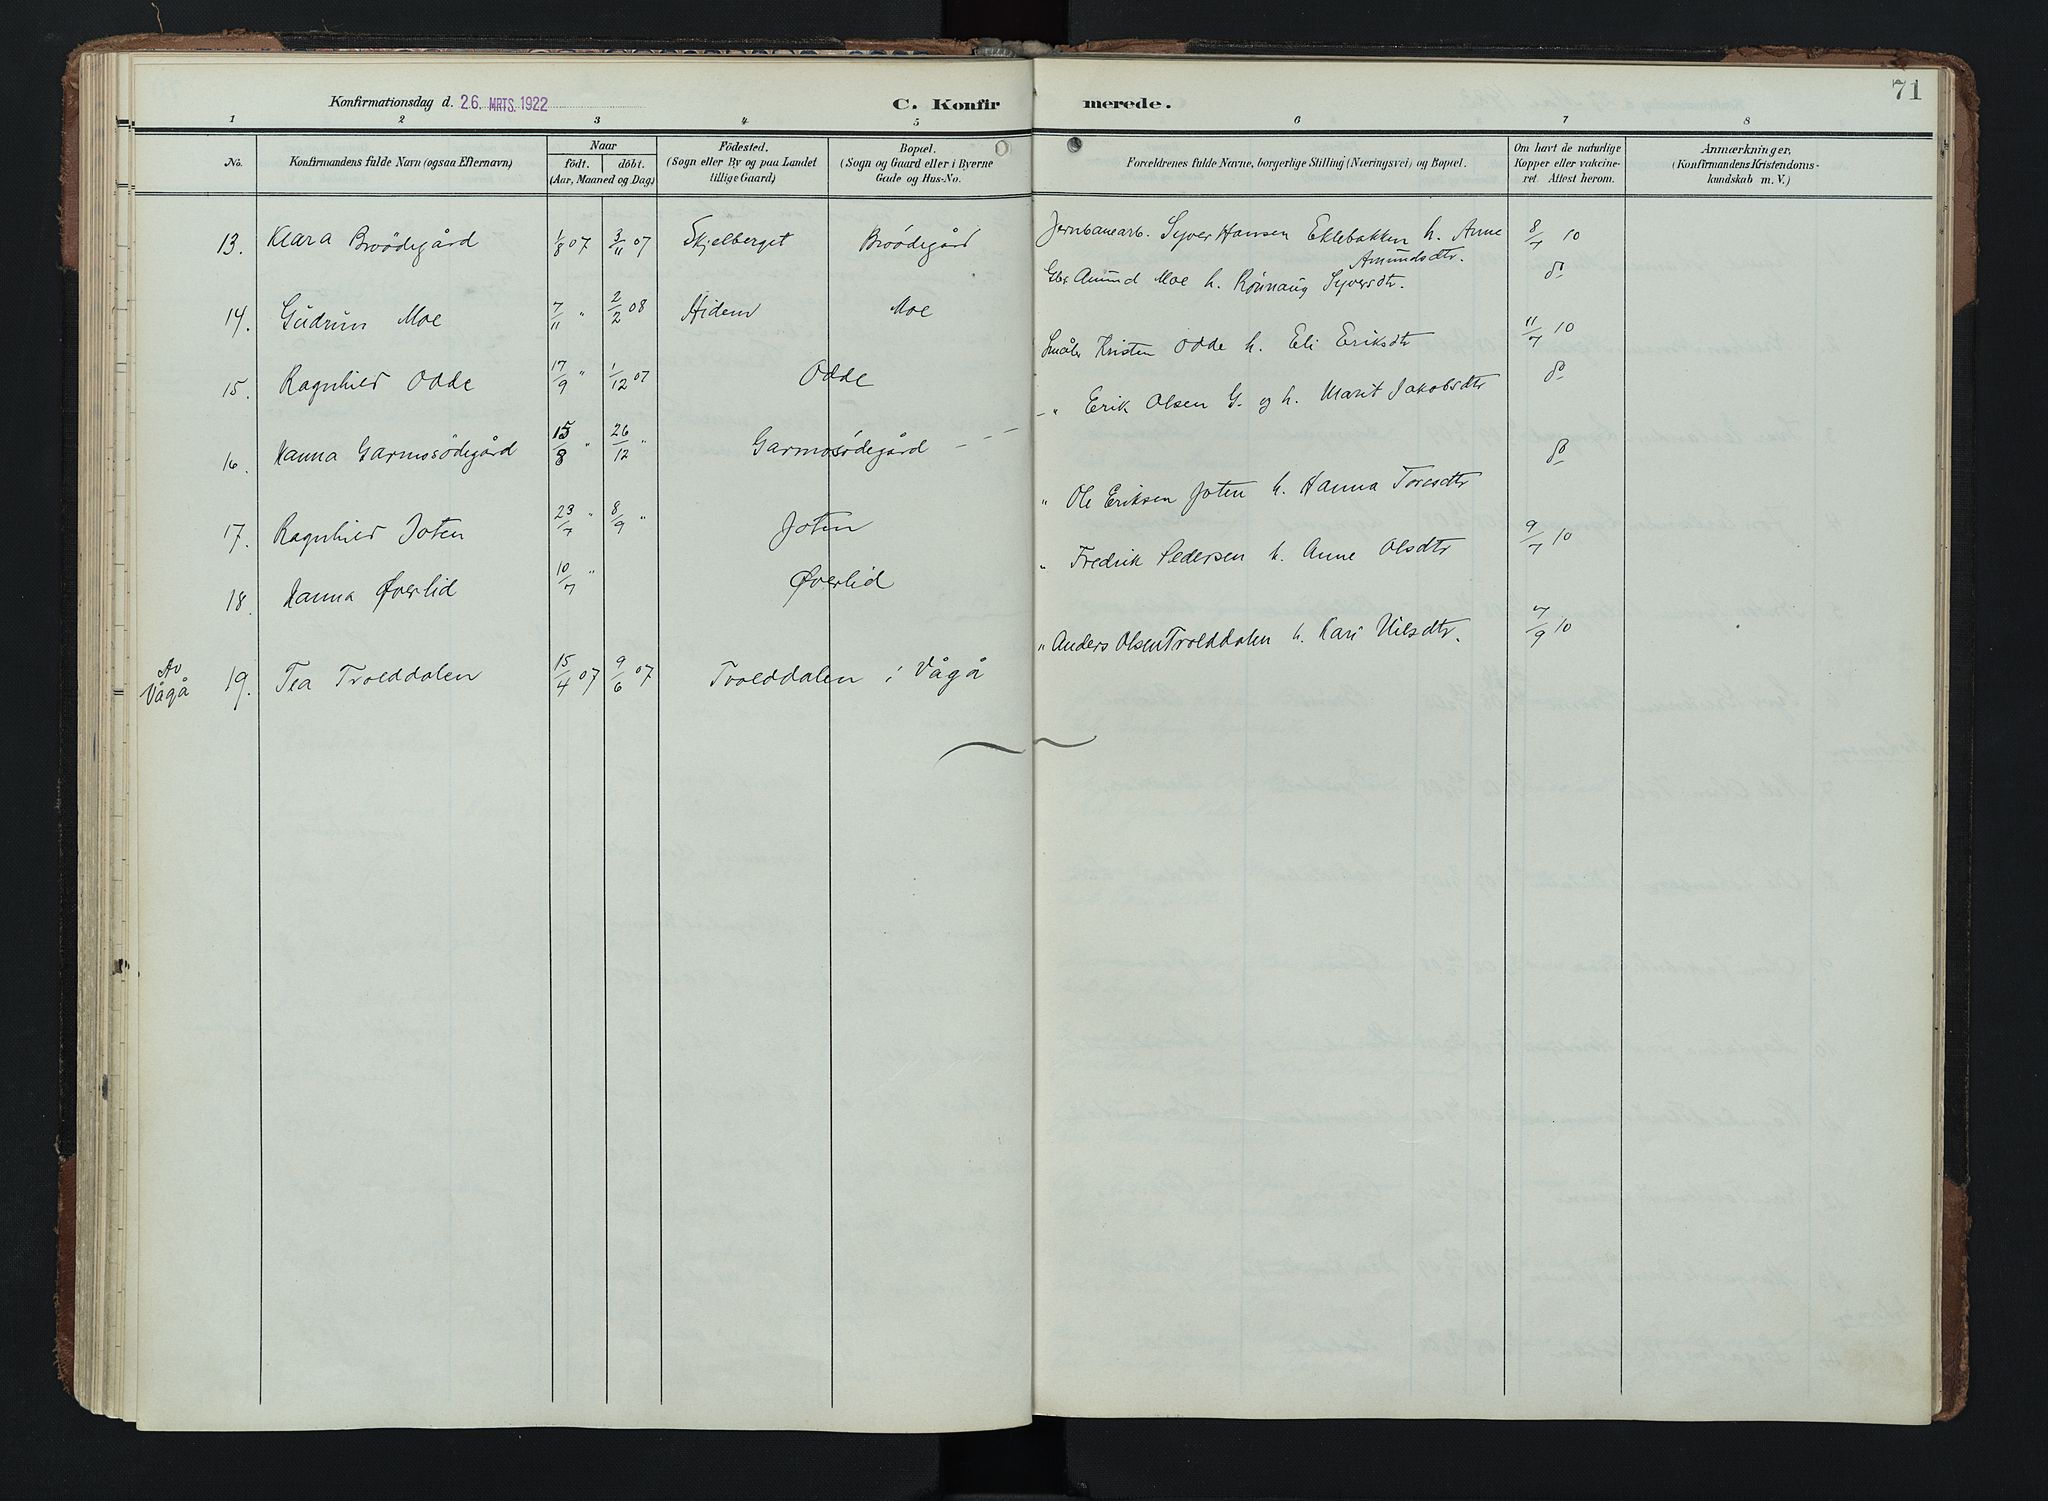 71
Konfirmationsdag d. 26. MRTS. 1922
C. Konfir merede.
1 2 3 4 5 6 7 8
No.
Konfirmandens fulde Navn (ogsaa Efternavn)
Naar
födt. döbt.
(Aar, Maaned og Dag)
Födested.
(Sogn eller By og paa Landet
tillige Gaard)
Bopæl.
(Sogn og Gaard eller i Byerne
Gade og Hus-No.
Forældrenes fulde Navne, borgerlige Stilling (Næringsvei) og Bopæl.
Om havt de naturlige
Kopper eller vakcine-
ret. Attest herom.
Anmærkninger,
(Konfirmandens Kristendoms-
kundskab m. V.)
13. Klara Broödegård 1/8 07 3/11 07 Skjelberget Broödegård Jernbanearb. Syver Hansen Eklebakken h. Anne Amundsdtr. 8/7 10
14. Gudrun Moe 7/11 " 2/2 08 Hidem Moe Gbr Amund Moe h. Rønnaug Syversdtr. do
15. Ragnhild Odde 17/9 " 1/12 07 Odde Småbr Kristen Odde h. Eli Eriksdtr 11/7 10
16. Hanna Garmosödegård 15/8 " 26/12 " Garmosödegård - " Erik Olsen G. og h. Marit Jakobsdtr do
17. Ragnhild Joten 23/7 " 8/9 " Joten " Ole Eriksen Joten h. Hanna Toresdtr do
18. Hanna Øverlid 10/7 " Øverlid " Fredrik Pedersen h. Anne Olsdtr 9/7 10
Av Vågå 19. Tea Trolddalen 15/4 07 9/6 07 Trolddalen i Vågå " Anders Olsen Trolddalen h. Kari Nilsdtr. 7/9 10